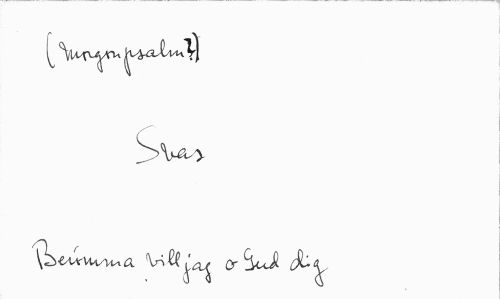 (Morgonpsalm?)
Svas
Berömma vill jag o Gud dig